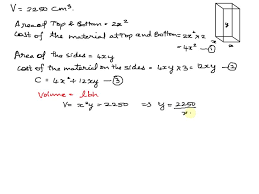 V = 2250 Cm³.
Area of Top & Bottom = 2x²
Cost of the material at Top and Bottom = 2x² × 2
= 4x² — ①
Area of the sides = 4xy
Cost of the material on the sides = 4xy × 3 = 12xy — ②
C = 4x² + 12xy — ③
Volume = lbh
V = x²y = 2250 ⇒ y = 2250/x
y
x